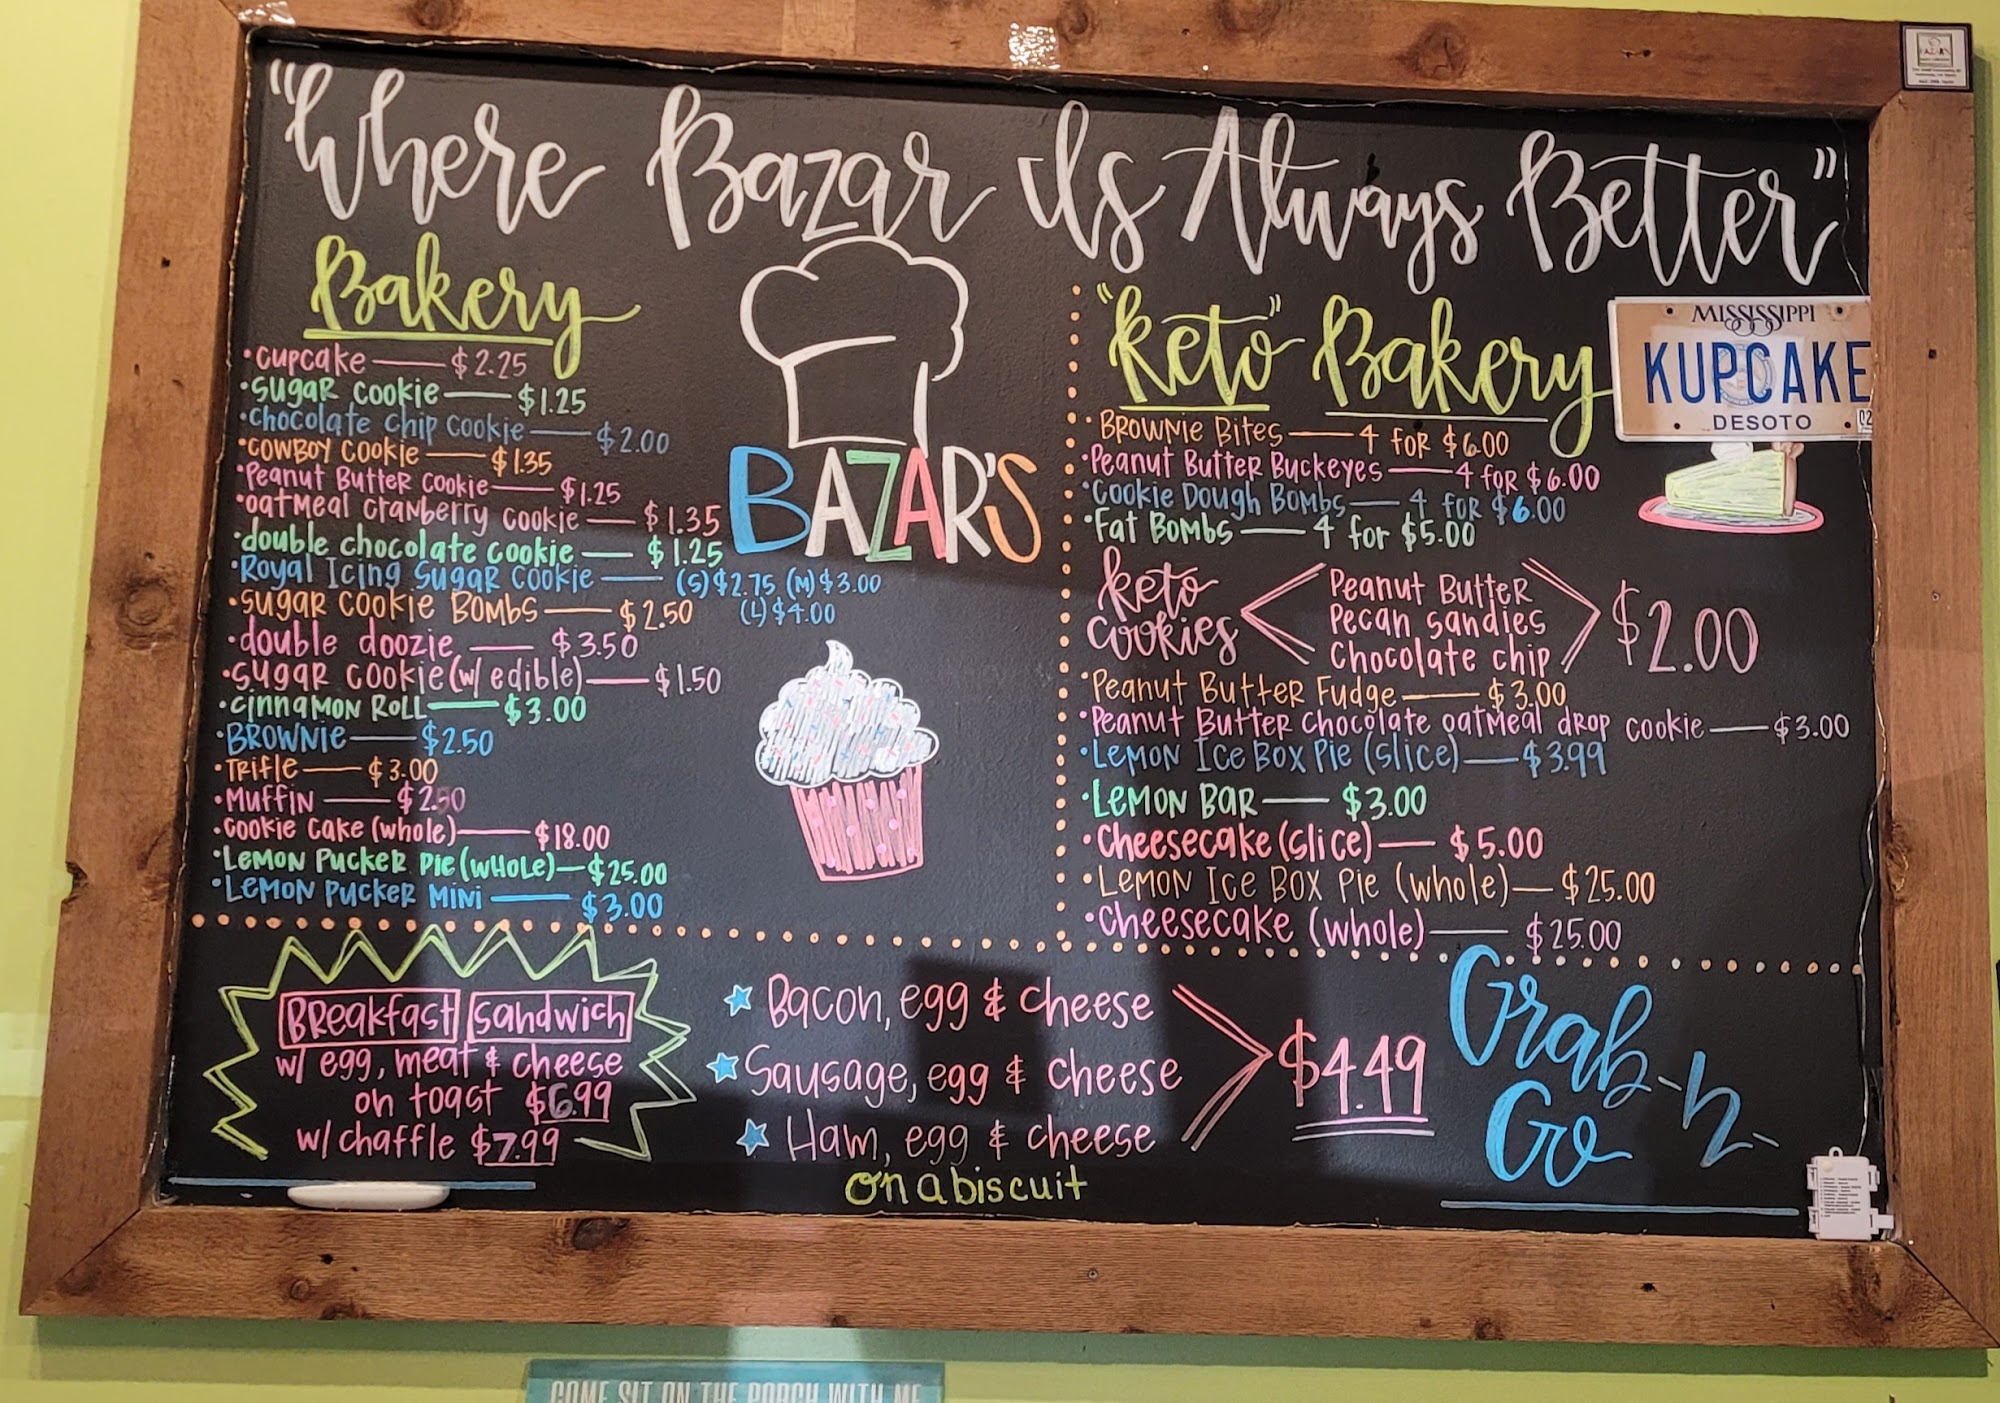 "Where Bazar Is Always Better"
Bakery
• Cupcake — $2.25
• Sugar Cookie — $1.25
• Chocolate Chip Cookie — $2.00
• Cowboy Cookie — $1.35
• Peanut Butter Cookie — $1.25
• Oatmeal Cranberry Cookie — $1.35
• double chocolate cookie — $1.25
• Royal Icing Sugar Cookie — (S) $2.75, (M) $3.00
(L) $4.00
• Sugar Cookie Bombs — $2.50
• double doozie — $3.50
• Sugar Cookie (w/ edible) — $1.50
• Cinnamon Roll — $3.00
• Brownie — $2.50
• Trifle — $3.00
• Muffin — $2.50
• Cookie Cake (whole) — $18.00
• Lemon Pucker Pie (whole) — $25.00
• Lemon Pucker Mini — $3.00
BAZAR'S
"Keto" Bakery
• Brownie Bites — 4 for $6.00
• Peanut Butter Buckeyes — 4 for $6.00
• Cookie Dough Bombs — 4 for $6.00
• Fat Bombs — 4 for $5.00
Keto Cookies
Peanut Butter
Pecan Sandies
Chocolate Chip
$2.00
• Peanut Butter Fudge — $3.00
• Peanut Butter Chocolate Oatmeal Drop Cookie — $3.00
• Lemon Ice Box Pie (slice) — $3.99
• Lemon Bar — $3.00
• Cheesecake (slice) — $5.00
• Lemon Ice Box Pie (whole) — $25.00
• Cheesecake (whole) — $25.00
MISSISSIPPI
KUPCAKE
DESOTO
02
Breakfast Sandwich
w/ egg, meat & cheese
on toast $6.99
w/ chaffle $7.99
Bacon, egg & cheese
Sausage, egg & cheese
Ham, egg & cheese
on a biscuit
$4.49
Grab-n-
Go
COME SIT ON THE PORCH WITH ME